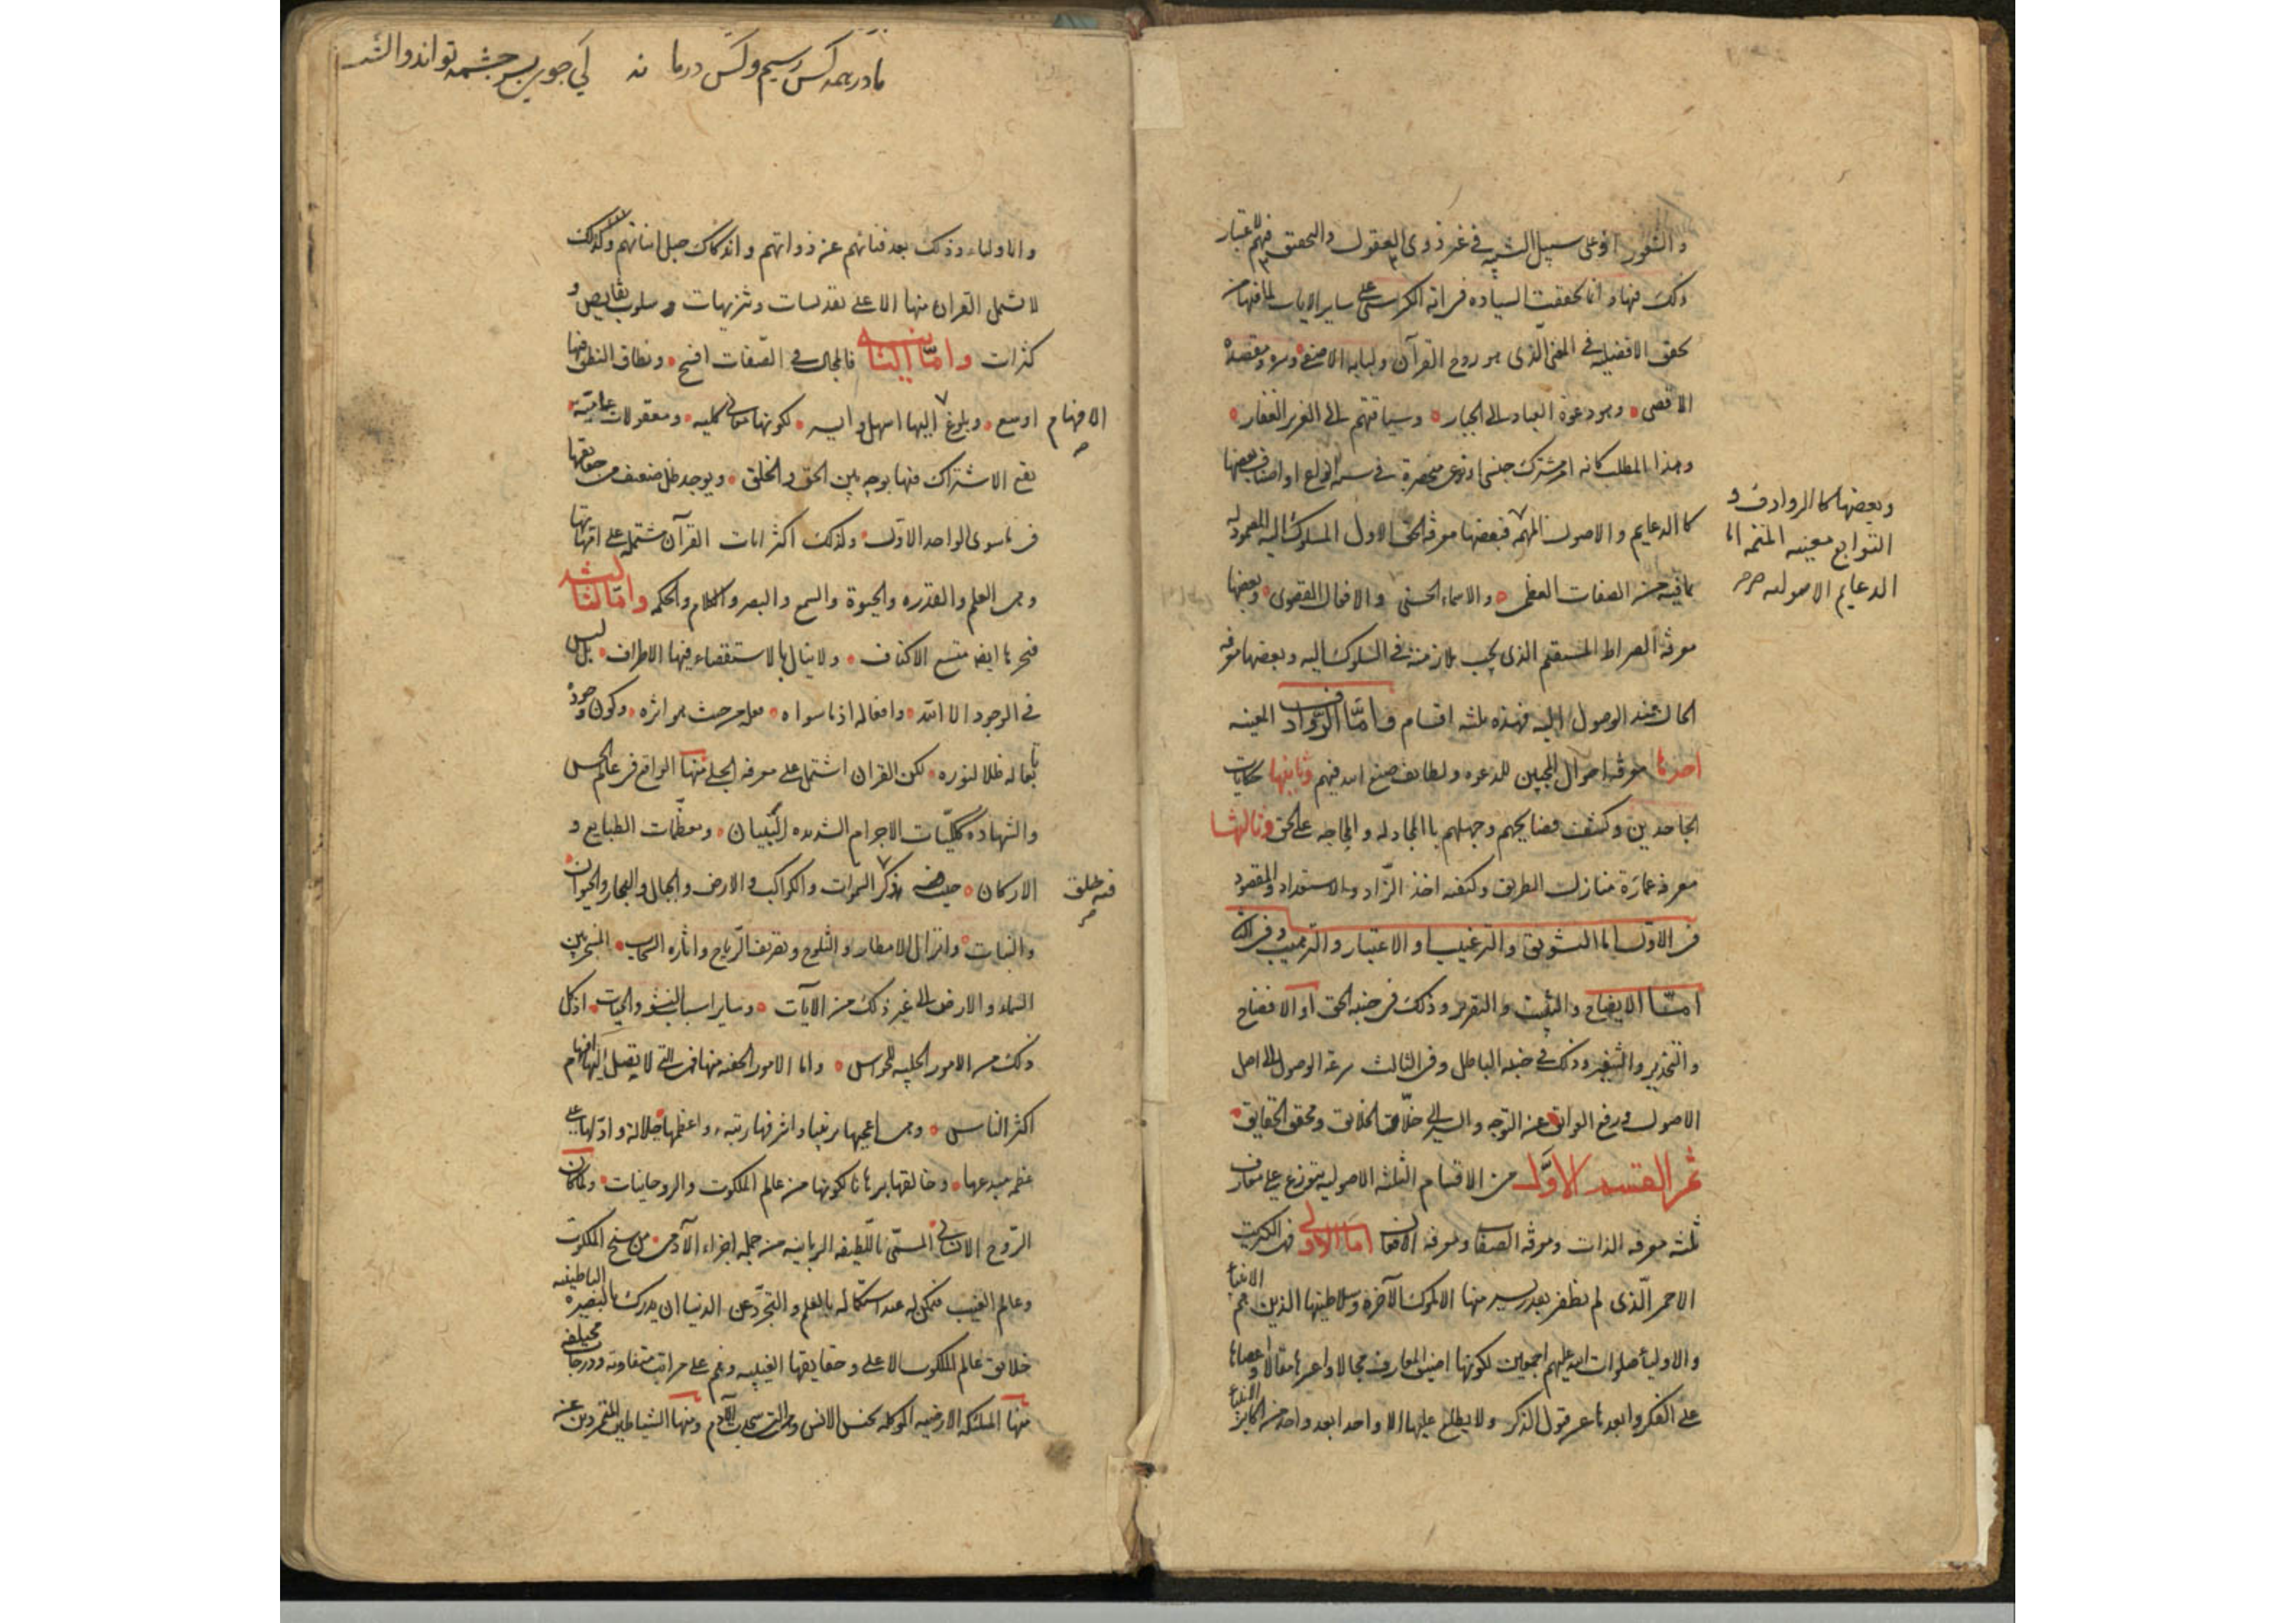 والشعور او على سبيل الشبه في غير ذوى العقول والتحقيق فهم لاعتبار
ذلك فيها و انما تحققت السياده في اية الكرسي على ساير الايات لما فيها من
تحقق الافضليه في المعنى الذى هو روح القرآن ولبابه الاصفى وسره ومقصده
الاقصى وهو دعوة العباد الى الجبار وسياقتهم الى العزيز الغفار
وهذا المطلب كانه امر مشترك جنسى او نوعى منحصرة في ستة انواع او اصناف بعضها
كالدعايم والاصول المهمه فبعضها معرفة الحق الاول المسلوك اليه المصمود له
بما فيه من الصفات العظمى والاسماء الحسنى والافعال القصوى وبعضها
معرفة الصراط المستقيم الذى يجب ملازمته في السلوك اليه وبعضها معرفة
الحال عند الوصول اليه فهذه ثلثه اقسام فامّا الرّوادف المعينه
احدها معرفة احوال المجيبين للدعوه ولطايف صنع الله فيهم وثانيها حكايات
الجاحدين وكشف فضايحهم وجهلهم بالمجادله والمحاجه على الحق وثالثها
معرفه عمارة منازل الطريق وكيفيه اخذ الزّاد والاستعداد والمقصود
فى الاول اما التشويق والترغيب او الاعتبار والترهيب وفى الثانى
امّا الايضاح والتثبيت والتقرير وذلك فى جنبه الحق او الافضاح
والتحذير والتنفير وذلك في جنبه الباطل وفى الثالث سرعة الوصول الى اصل
الاصول ورفع العوايق عن التوجه والسير الى خلّاق الخلايق ومحقق الحقايق
ثم القسم الاوّل من الاقسام الثلثه الاصوليه يتوزع على معارف
ثلثه معرفه الذات ومعرفة الصفات ومعرفه الافعال امّا الاولى فهى الكبريت
الاحمر الّذى لم يظفر بقدر يسير منها الا ملوك الآخرة وسلاطينها الذين هم الانبياء
والاولياء صلوات الله عليهم اجمعين لكونها اضيق المعارف مجالا واعسرها مقالا واعصاها
على الفكر وابعدها عن قبول الذكر ولا يطلع عليها الا واحد بعد واحد من اكابر الانبياء
وبعضها كالروادف و
التوابع معينه المتممه
الدعايم الاصوليه
مادر همه كس رسيم وكس درما نه
كى جوى بسر چشمه تواند
والاولياء وذلك بعد فنائهم عن ذواتهم واندكاك جبل انياتهم ولذلك
لا تشمل القران منها الا على تقديسات وتنزيهات وسلوب نقايص و
كثرات وامّا الثانيه فالمجال في الصّفات افسح ونطاق النطق فيها
اوسع وبلوغ اليها اسهل وايسر لكونها معانى كليه ومعقولات عاميّه
الافهام
يقع الاشتراك فيها بوجه بين الحق والخلق ويوجد ظل ضعيف من حقايقها
فى ما سوى الواحد الاوّل ولذلك اكثر ايات القرآن مشتمله على امهاتها
وهى العلم والقدره والحيوة والسمع والبصر والكلام والحكمه وامّا الثالثه
فبحرها ايضا متسع الاكناف ولا ينال بالاستقصاء فيها الاطراف بل ليس
في الوجود الا الله وافعاله اذ ما سواه فعله من حيث هو اثره وكون وجوده
تابعا له ظلا لنوره لكن القران اشتمل على معرفه الجلى منها الواقع فى عالم الحس
والشهاده ككليّات الاجرام الشديده البنيان ومعظّمات الطبايع و
الاركان حيث فيه يذكر السموات والكواكب والارض والجبال والبحار والحيوان
فيه خلق
والنبات وانزال الامطار والثلوج وتصريف الرّياح واثاره السحاب المسخر بين
السماء والارض الى غير ذلك من الآيات وساير اسباب النشو والحيات اذ كل
ذلك من الامور الجليه للحواس واما الامور الخفيه منها فهى التى لا يصل اليها افهام
اكثر الناس وهى اعجبها ترتيبا واشرفها رتبه واعظمها جلالة وادلها على
عظم مبدعها وخالقها برهانا لكونها من عالم الملكوت والروحانيات ولما كان
الرّوح الانسانى المسمّى باللّطيفه الربانيه من جمله اجزاء الآدمى من سنخ الملكوت
وعالم الغيب فيمكن له عند استكماله بالعلم والتجرّد عن الدنيا ان يدرك بالبصيره الباطنيه
خلايق عالم الملكوت الاعلى وحقايقها الغيبيه وهم على مراتب متفاوته ودرجات مختلفه
منها الملئكه الارضيه الموكله بجنس الانس وهى التى سجدت لآدم ومنها الشياطين المتمردين عن